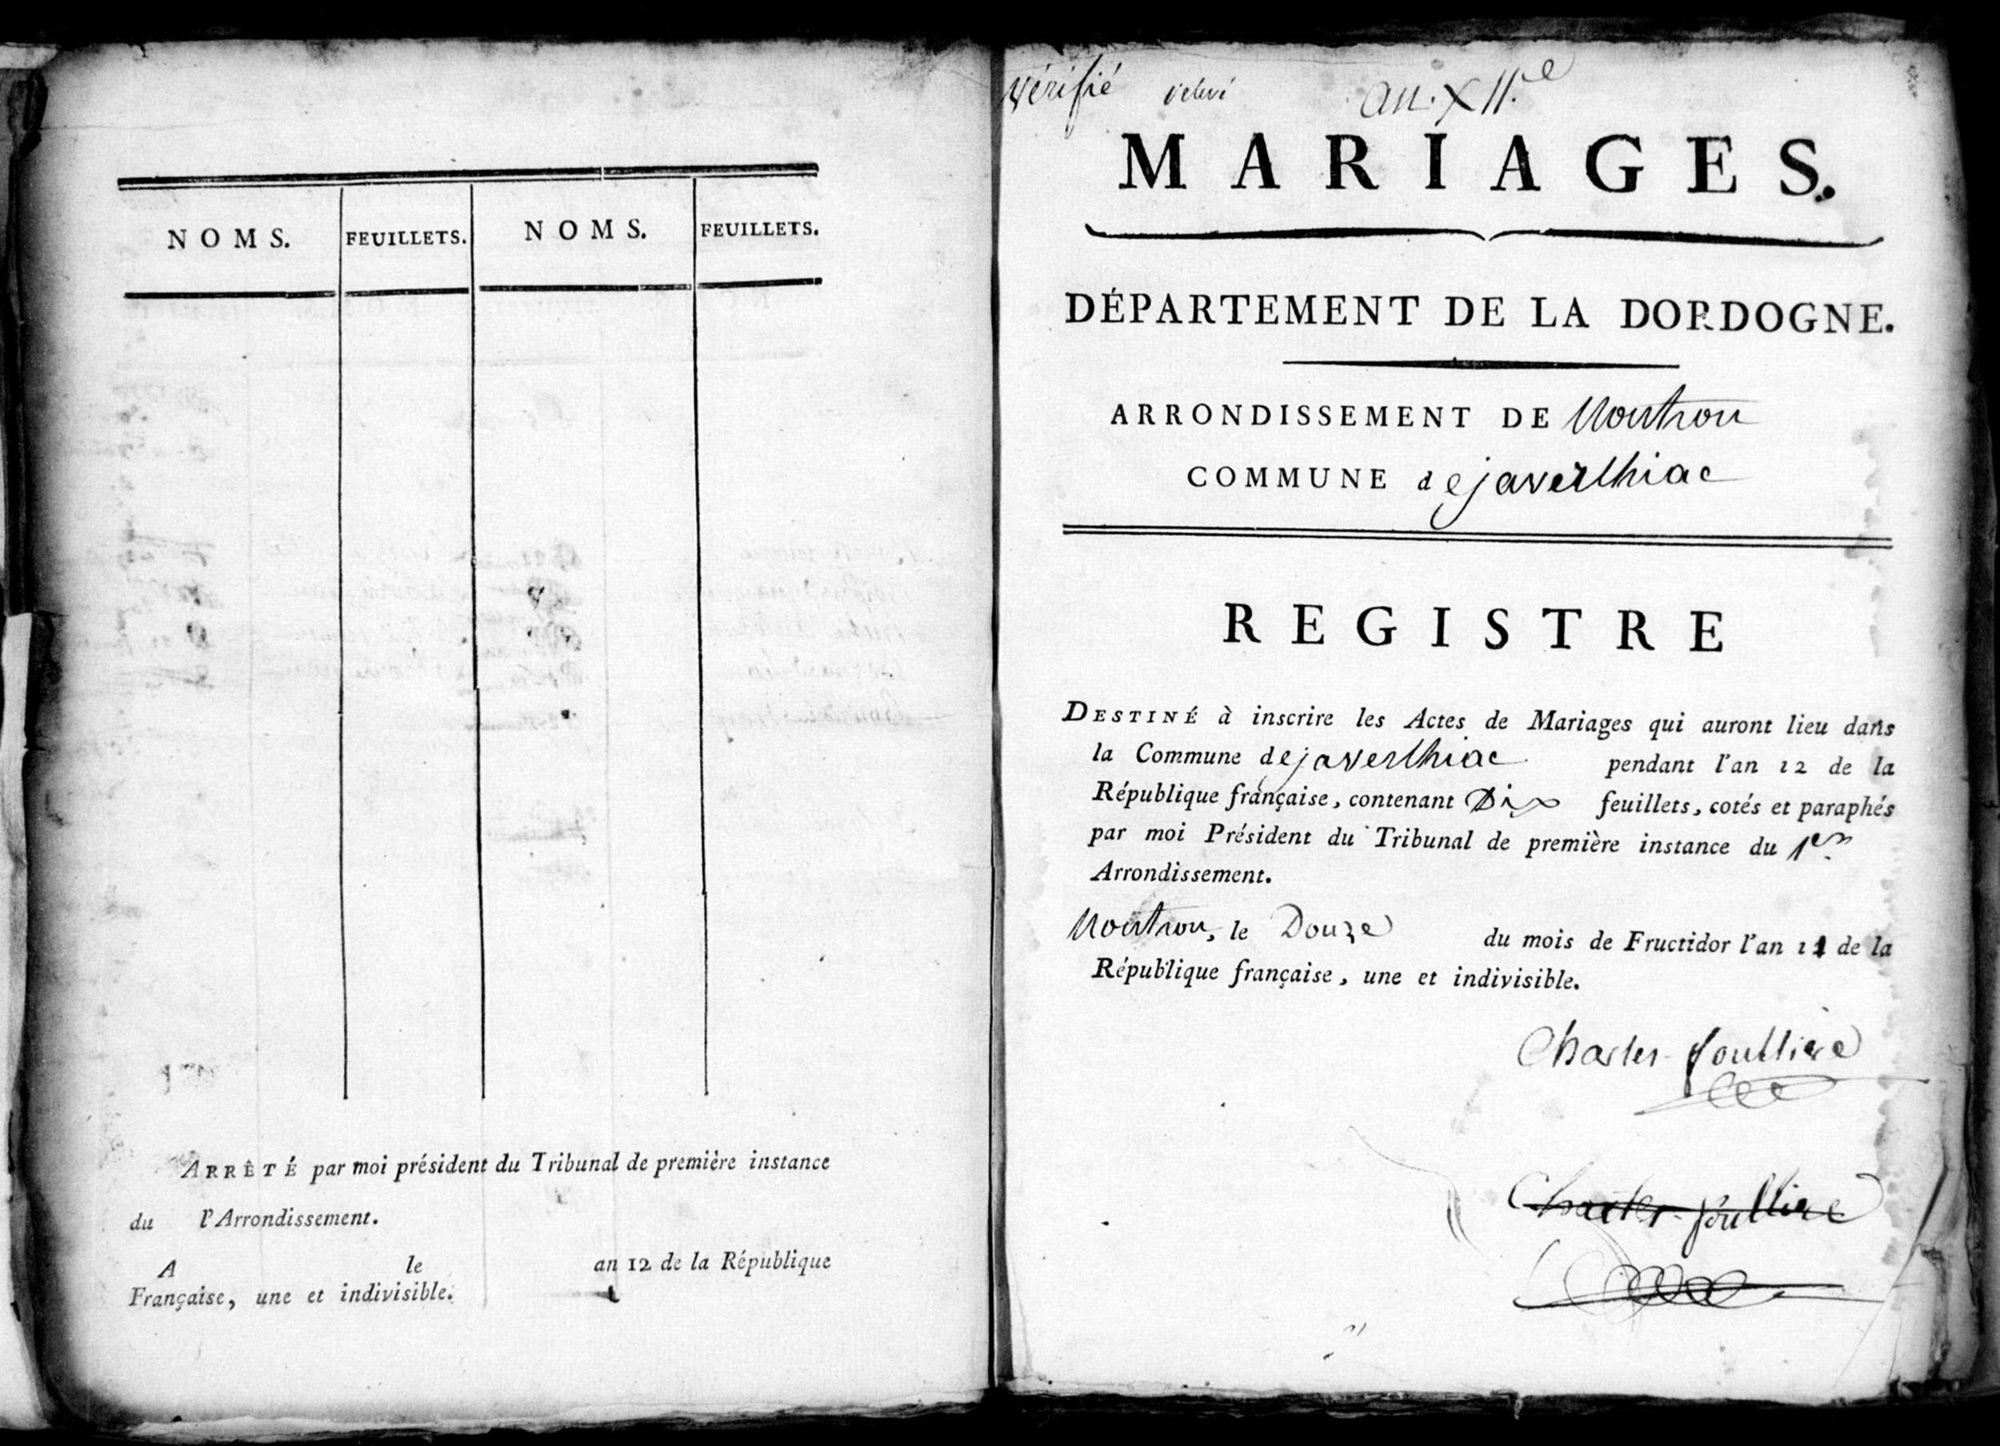 NOMS. FEUILLETS. NOMS. FEUILLETS.
ARRÊTÉ par moi président du Tribunal de première instance
du l'Arrondissement.
A le an 12 de la République
Française, une et indivisible.
vérifié relevé an XII.e
MARIAGES.
DÉPARTEMENT DE LA DORDOGNE.
ARRONDISSEMENT DE Nontron
COMMUNE de javerlhiac
REGISTRE
DESTINÉ à inscrire les Actes de Mariages qui auront lieu dans
la Commune de javerlhiac pendant l'an 12 de la
République française, contenant Dix feuillets, cotés et paraphés
par moi Président du Tribunal de première instance du 1er
Arrondissement.
Nontron, le Douze du mois de Fructidor l'an 11 de la
République française, une et indivisible.
Charles
Charles